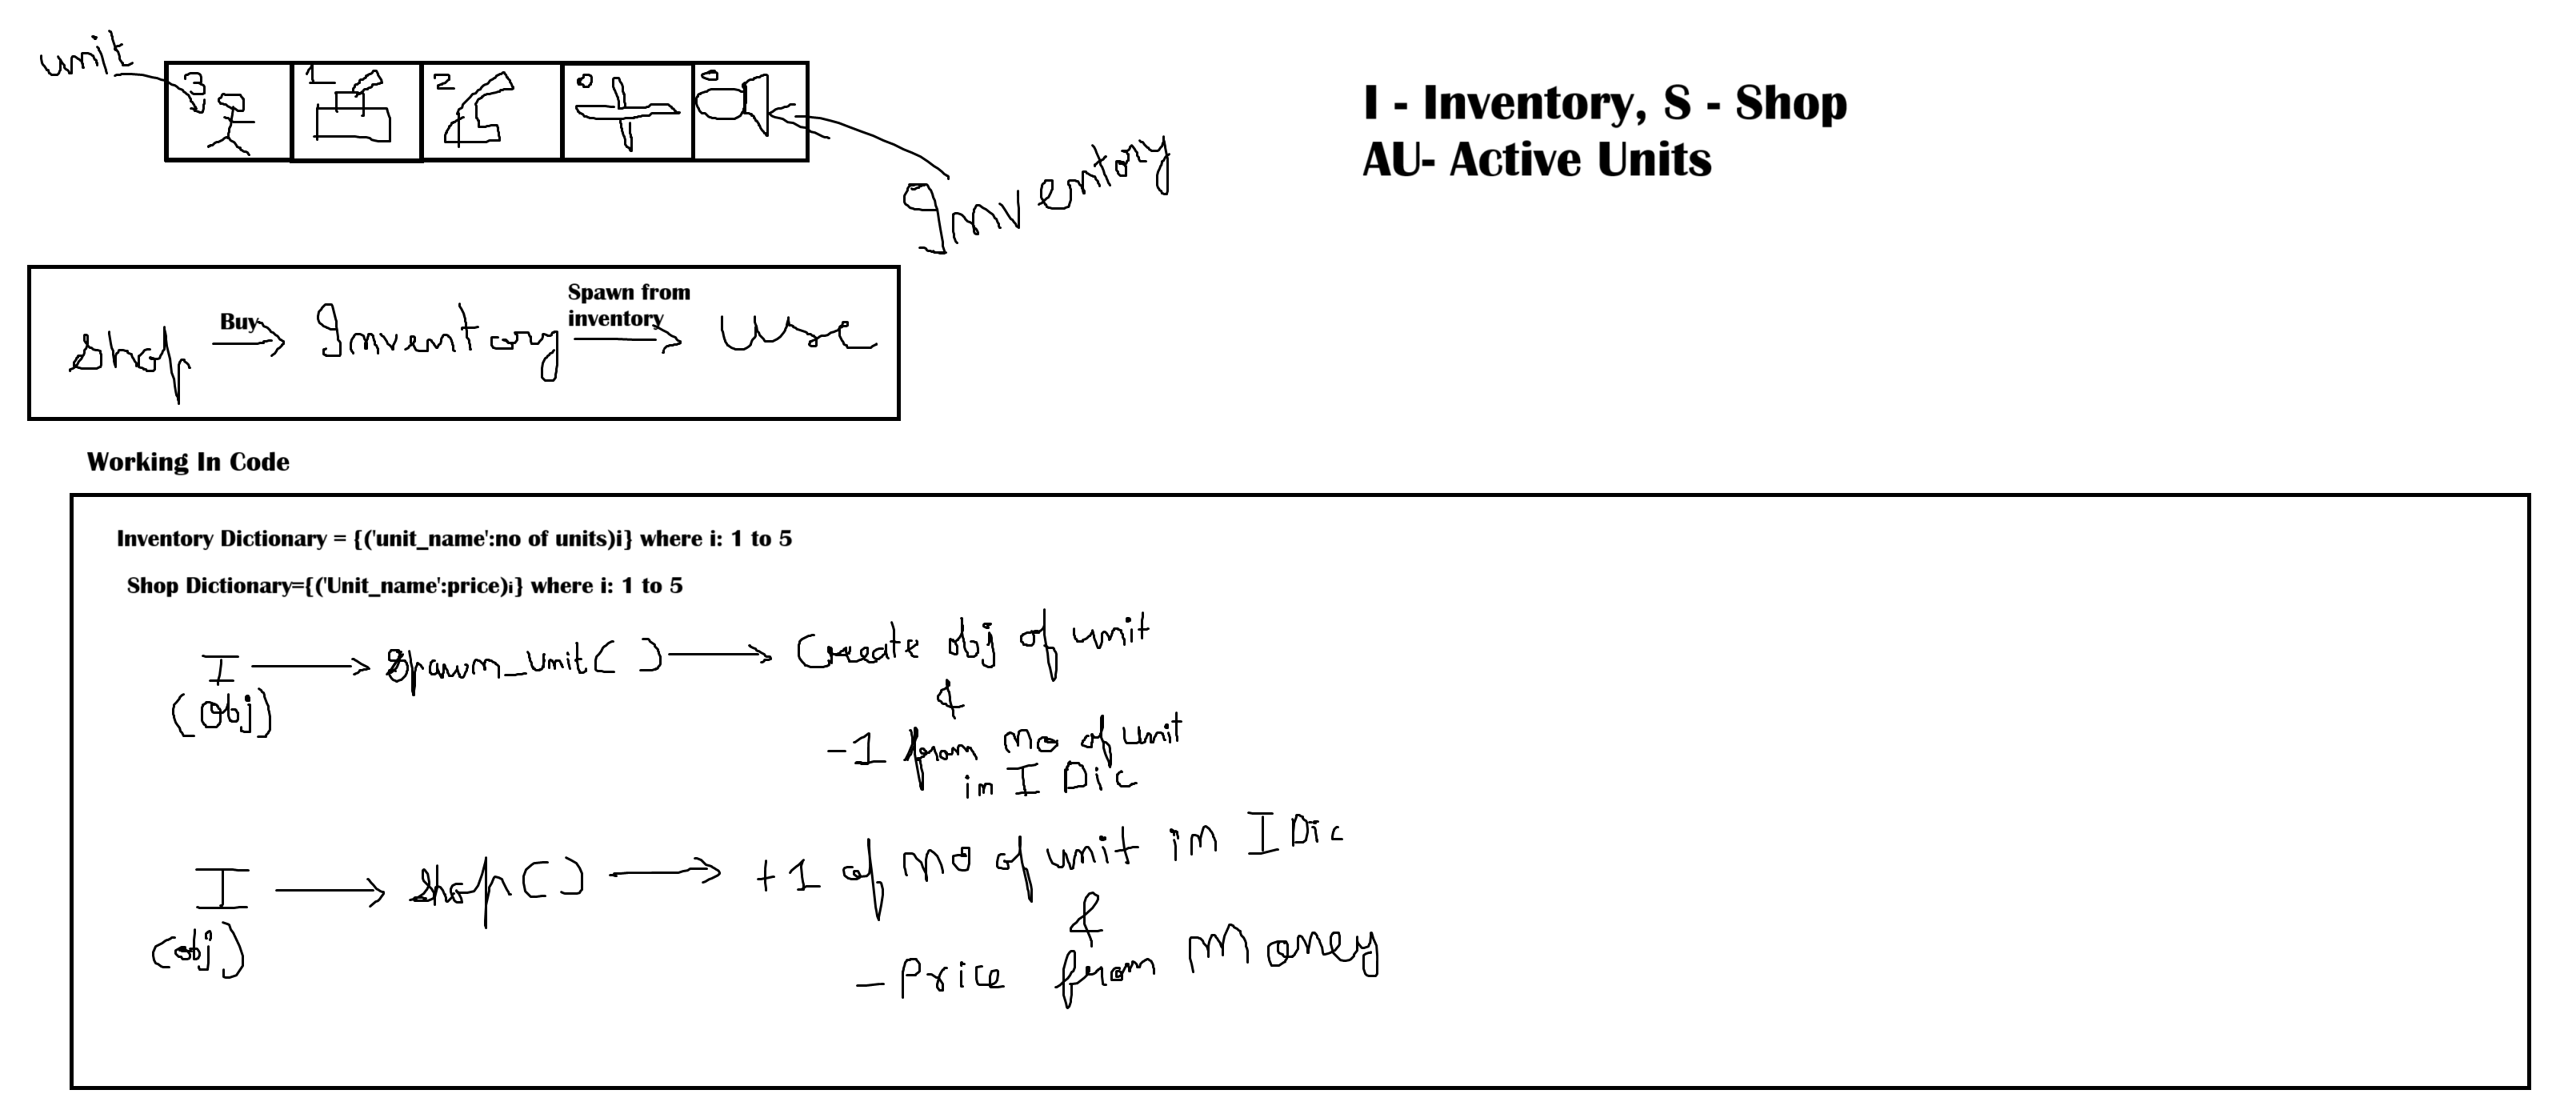 unit
3 1 2 0 0
Inventory
I - Inventory, S - Shop
AU- Active Units
Shop Buy Inventory Spawn from inventory use
Working In Code
Inventory Dictionary = {('unit_name':no of units)i} where i: 1 to 5
Shop Dictionary={('Unit_name':price)i} where i: 1 to 5
I spawn_unit() Create obj of unit
(obj)
&
-1 from no of unit
in I Dic
I shop() +1 of no of unit in I Dic
(obj)
&
- Price from Money